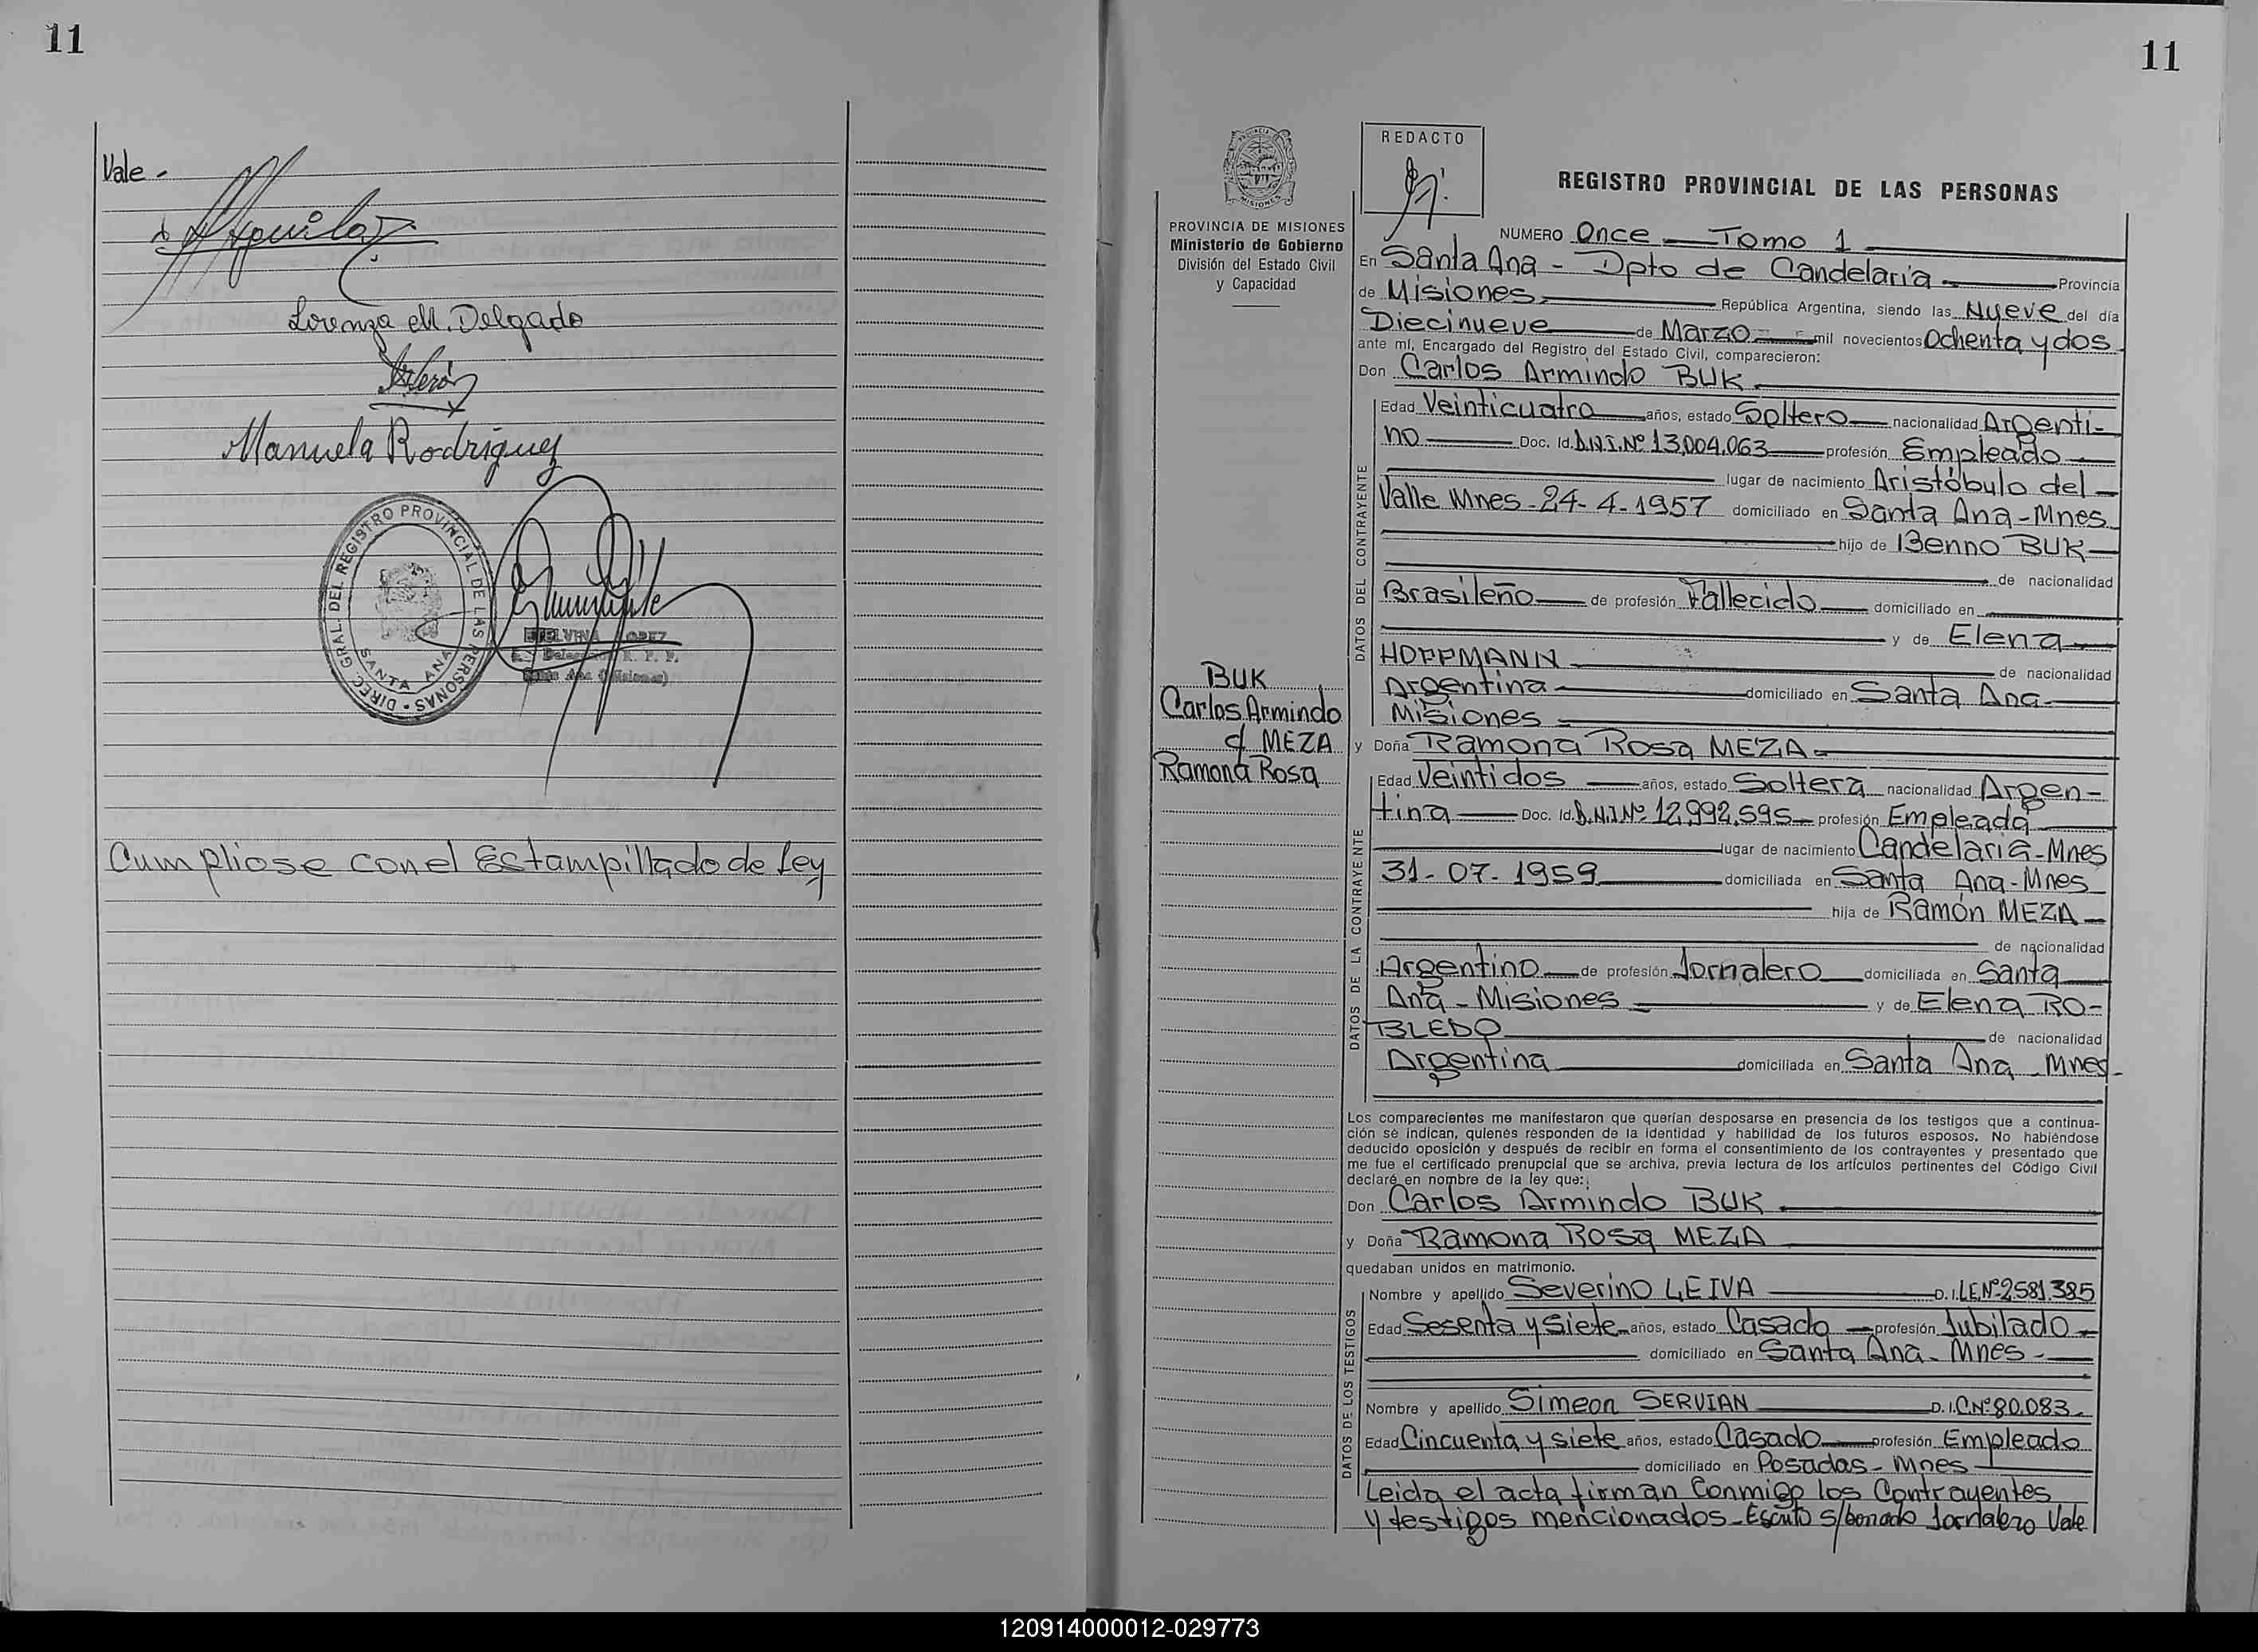 11
Vale -
Aguilar
Lorenza M. Delgado
Manuela Rodriguez
DIREC. GRAL. DEL REGISTRO PROVINCIAL DE LAS PERSONAS • SANTA ANA
ETELVINA LOPEZ
Delegada R. P. P.
Santa Ana (Misiones)
Cumpliose con el Estampillado de Ley
11
REDACTO
PROVINCIA DE MISIONES
Ministerio de Gobierno
División del Estado Civil
y Capacidad
BUK
Carlos Armindo
c/ MEZA
Ramona Rosa
REGISTRO PROVINCIAL DE LAS PERSONAS
NUMERO Once — Tomo 1
En Santa Ana - Dpto de Candelaria Provincia
de Misiones República Argentina, siendo las Nueve del día
Diecinueve de Marzo mil novecientos Ochenta y dos
ante mí, Encargado del Registro del Estado Civil, comparecieron:
Don Carlos Armindo BUK
DATOS DEL CONTRAYENTE
Edad Veinticuatro años, estado Soltero nacionalidad Argenti-
no Doc. Id. D.N.I. Nº 13,004,063 profesión Empleado
lugar de nacimiento Aristóbulo del
Valle Mnes - 24-4-1957 domiciliado en Santa Ana-Mnes
hijo de Benno BUK
de nacionalidad
Brasileño de profesión Fallecido domiciliado en
y de Elena
HOFFMANN
de nacionalidad
Argentina domiciliado en Santa Ana
Misiones
y Doña Ramona Rosa MEZA
DATOS DE LA CONTRAYENTE
Edad Veintidos años, estado Soltera nacionalidad Argen-
tina Doc. Id. D.N.I. Nº 12,992,595 profesión Empleada
lugar de nacimiento Candelaria-Mnes
31-07-1959 domiciliada en Santa Ana-Mnes
hija de Ramón MEZA
de nacionalidad
Argentino de profesión Jornalero domiciliada en Santa
Ana - Misiones y de Elena RO-
BLEDO de nacionalidad
Argentina domiciliada en Santa Ana - Mnes-
Los comparecientes me manifestaron que querían desposarse en presencia de los testigos que a continua-
ción se indican, quienes responden de la identidad y habilidad de los futuros esposos. No habiéndose
deducido oposición y después de recibir en forma el consentimiento de los contrayentes y presentado que
me fue el certificado prenupcial que se archiva, previa lectura de los artículos pertinentes del Código Civil
declaré en nombre de la ley que:
Don Carlos Armindo BUK
y Doña Ramona Rosa MEZA
quedaban unidos en matrimonio.
DATOS DE LOS TESTIGOS
Nombre y apellido Severino LEIVA D. I. L.E. Nº 2581.385
Edad Sesenta y siete años, estado Casado profesión Jubilado
domiciliado en Santa Ana - Mnes -
Nombre y apellido Simeon SERVIAN D. I. C. Nº 80.083
Edad Cincuenta y siete años, estado Casado profesión Empleado
domiciliado en Posadas - Mnes
Leida el acta firman Conmigo los Contrayentes
y testigos mencionados - Escrito s/borrado Jornalero Vale
120914000012-029773